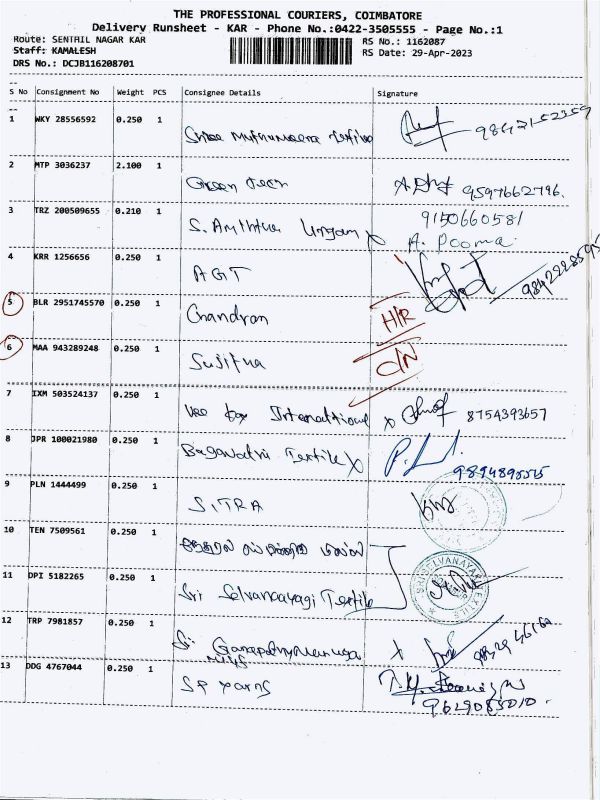 THE PROFESSIONAL COURIERS, COIMBATORE
Delivery Runsheet - KAR - Phone No.:0422-3505555 - Page No.:1
Route: SENTHIL NAGAR KAR
RS No.: 1162087
Staff: KAMALESH
RS Date: 29-Apr-2023
DRS No.: DCJB116208701
S No Consignment No Weight PCS Consignee Details Signature
1 WKY 28556592 0.250 1 Shree Textiles
2 MTP 3036237 2.100 1 Green Tech 9597662796
3 TRZ 200509655 0.210 1 9150660581
A. Pooma
4 KRR 1256656 0.250 1 AGT 9842228595
5 BLR 2951745570 0.250 1 Chandran H/R
6 MAA 943289248 0.250 1 Sujitha C/N
7 IXM 503524137 0.250 1 Vee International x 8754393657
8 JPR 100021980 0.250 1 Bagavathi Textile x
9 PLN 1444499 0.250 1 SITRA
10 TEN 7509561 0.250 1
11 DPI 5182265 0.250 1 Sri Selvanayagi Textile
12 TRP 7981857 0.250 1 Sri x
Mills
13 DDG 4767044 0.250 1 SP Yarns
9629083010